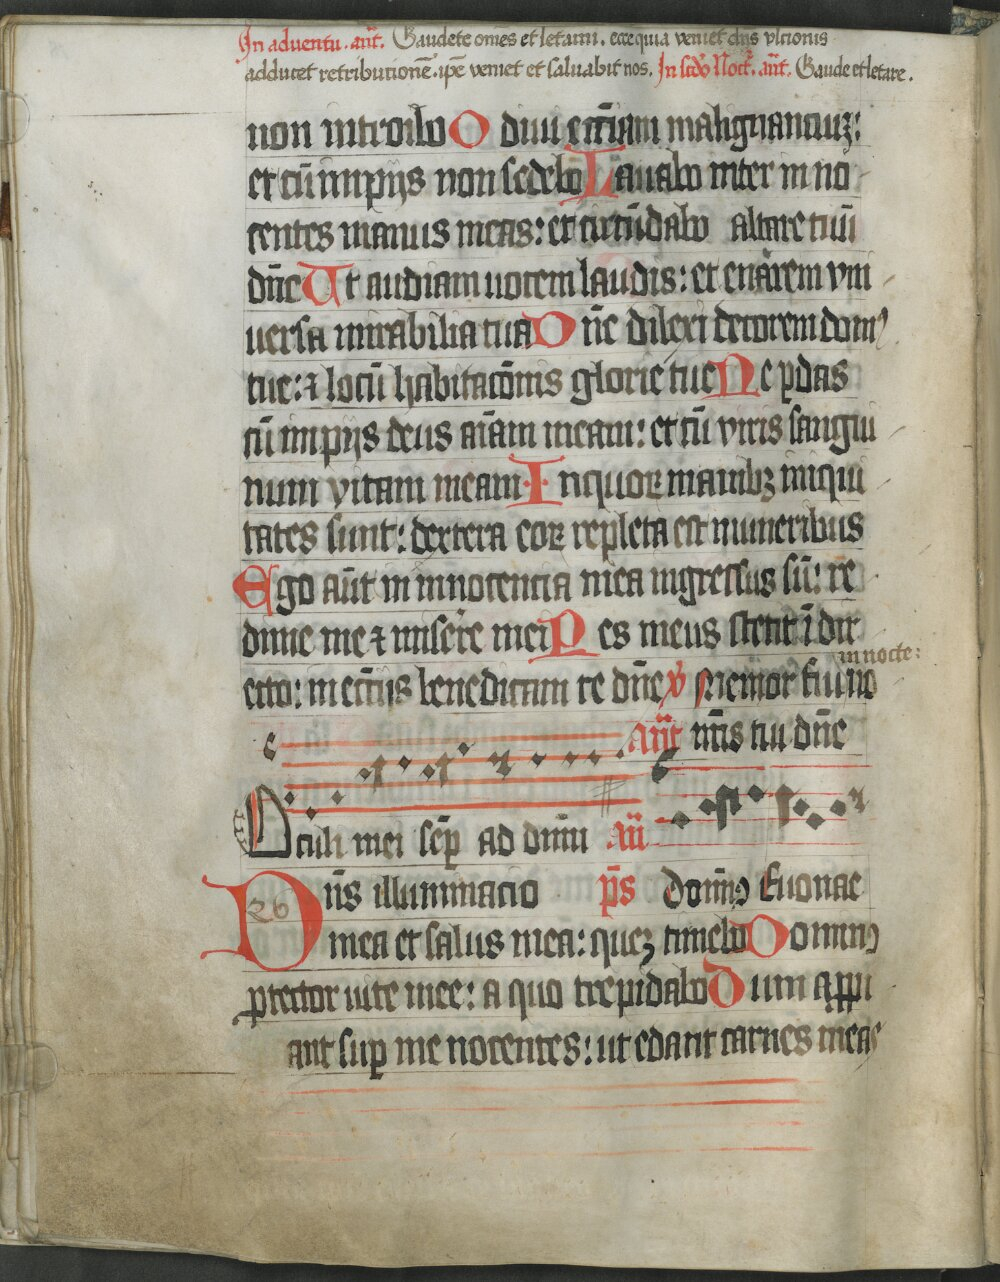 In aduentu. ant̄. Gaudete om̄es et letami. ecce quia veniet dn̄s vltionis
adducet retributionē. ip̄e veniet et saluabit nos. In scd̄o Noct̄. ant̄. Gaude et letare.
non introibo Odiui ecc̄iam malignanciuꝫ:
et cū impijs non sedebo Lauabo inter inno
centes manus meas: et circūdabo altare tuū
dn̄e Ut audiam uocem laudis: et enarem vni
uersa mirabilia tua Dn̄e dilexi decorem domꝰ
tue: ⁊ locū habitacōnis glorie tue Ne ꝑdas
cū impijs deus aīam meam: et cū viris sangui
num vitam meam In quoꝝ manibꝫ iniqui
tates sunt: dextera eoꝝ repleta est muneribus
Ego aūt in innocencia mea ingressus sū: re
dime me ⁊ misēre mei Pes meus stetit ī dir
ecto: in ecc̄ijs benedicam te dn̄e ℣ Memor fui no
in nocte:
ant̄ mīs tui dn̄e
Oculi mei semꝑ ad dn̄m an̄
Dn̄s illuminacio p̄s Domīꝰ Euouae
26
mea et salus mea: queꝫ timebo Dominꝰ
ꝓtector uite mee: a quo trepidabo Dum aꝓpi
ant suꝑ me nocentes: ut edant carnes meas